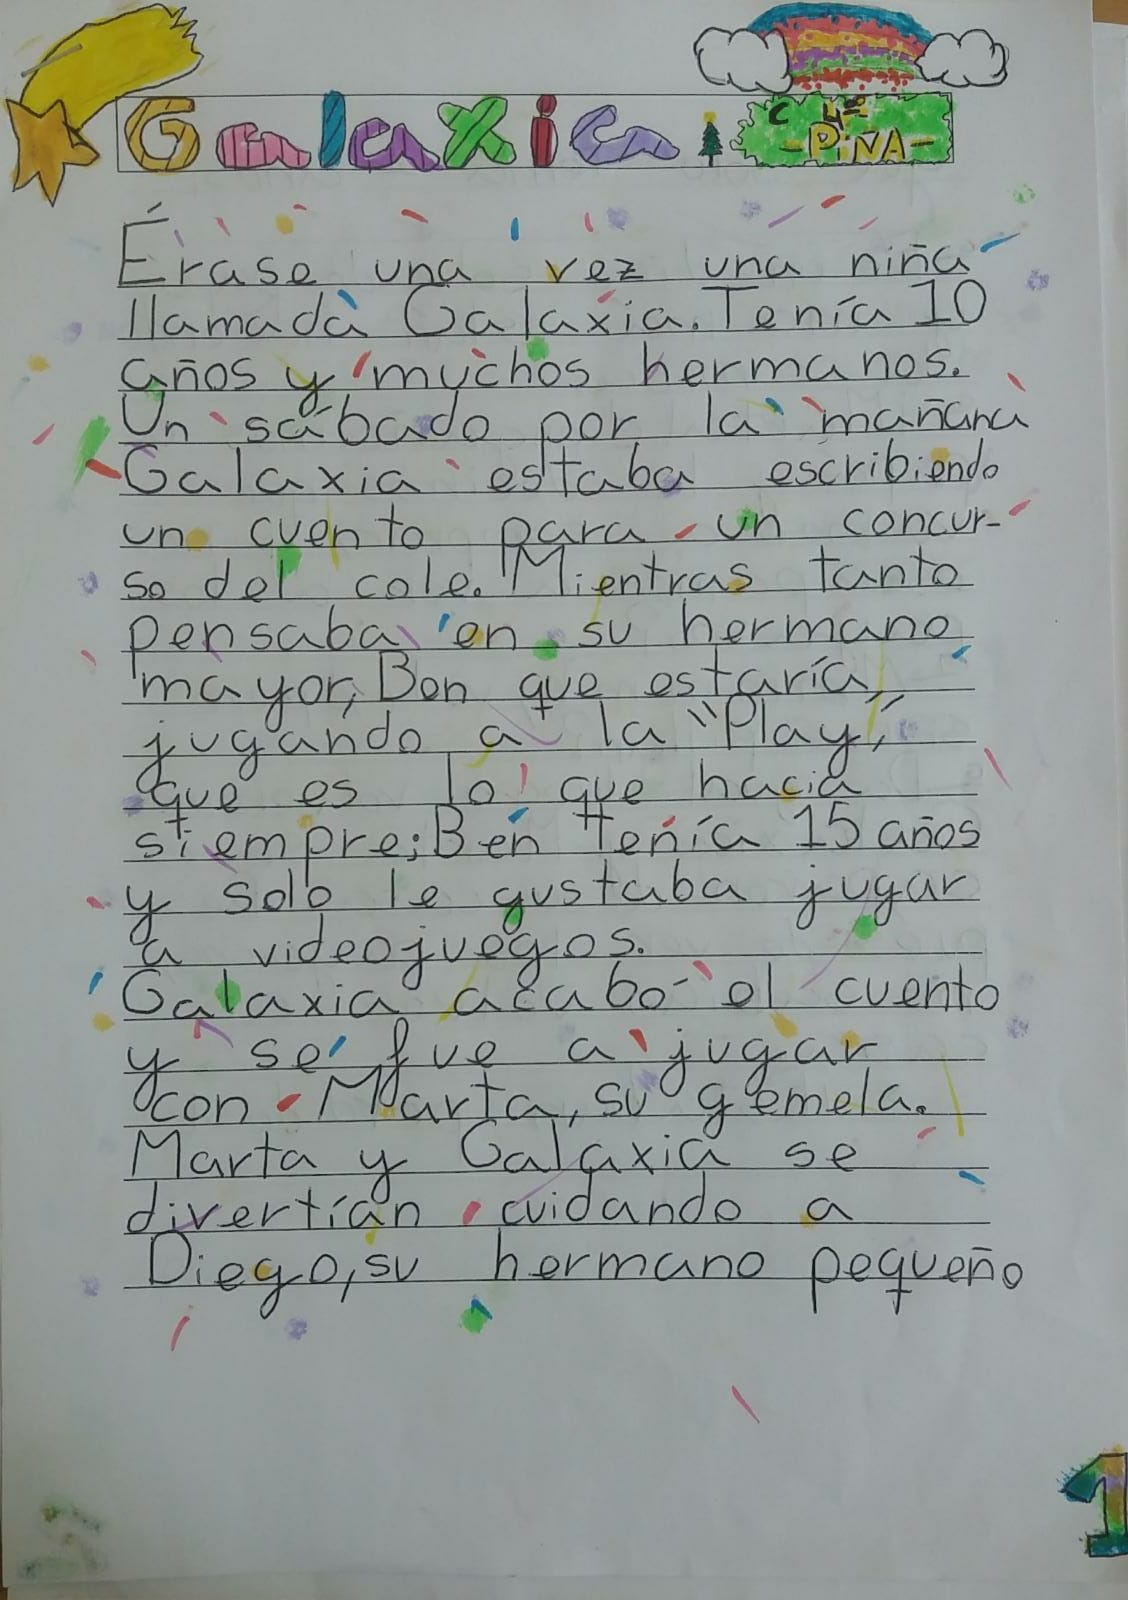 Galaxia
C 4º
-PiÑA-
Érase una vez una niña
llamada Galaxia. Tenía 10
años y muchos hermanos.
Un sábado por la mañana
Galaxia estaba escribiendo
un cuento para un concur-
so del cole. Mientras tanto
pensaba en su hermano
mayor, Ben que estaría
jugando a la "Play",
que es lo que hacia
siempre; Ben tenía 15 años
y solo le gustaba jugar
a videojuegos.
Galaxia acabo el cuento
y se fue a jugar
con Marta, su gemela.
Marta y Galaxia se
divertían cuidando a
Diego, su hermano pequeño
1